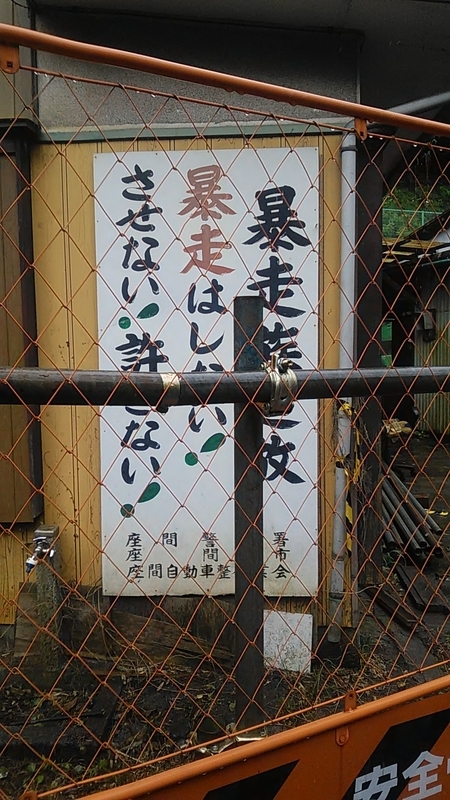 暴走族追放
暴走はしない!
させない!許さない!
座間警察署
座間市
座間自動車整
会
安全